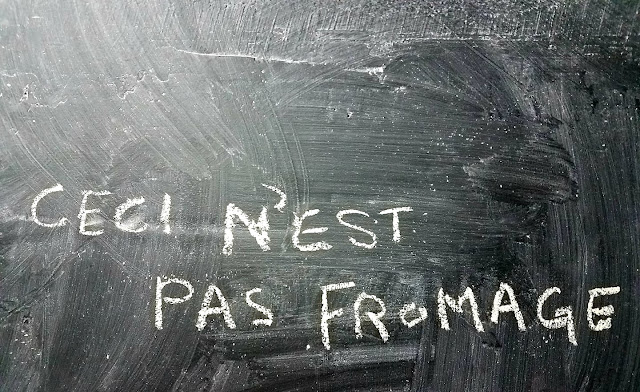 CECI N'EST
PAS FROMAGE